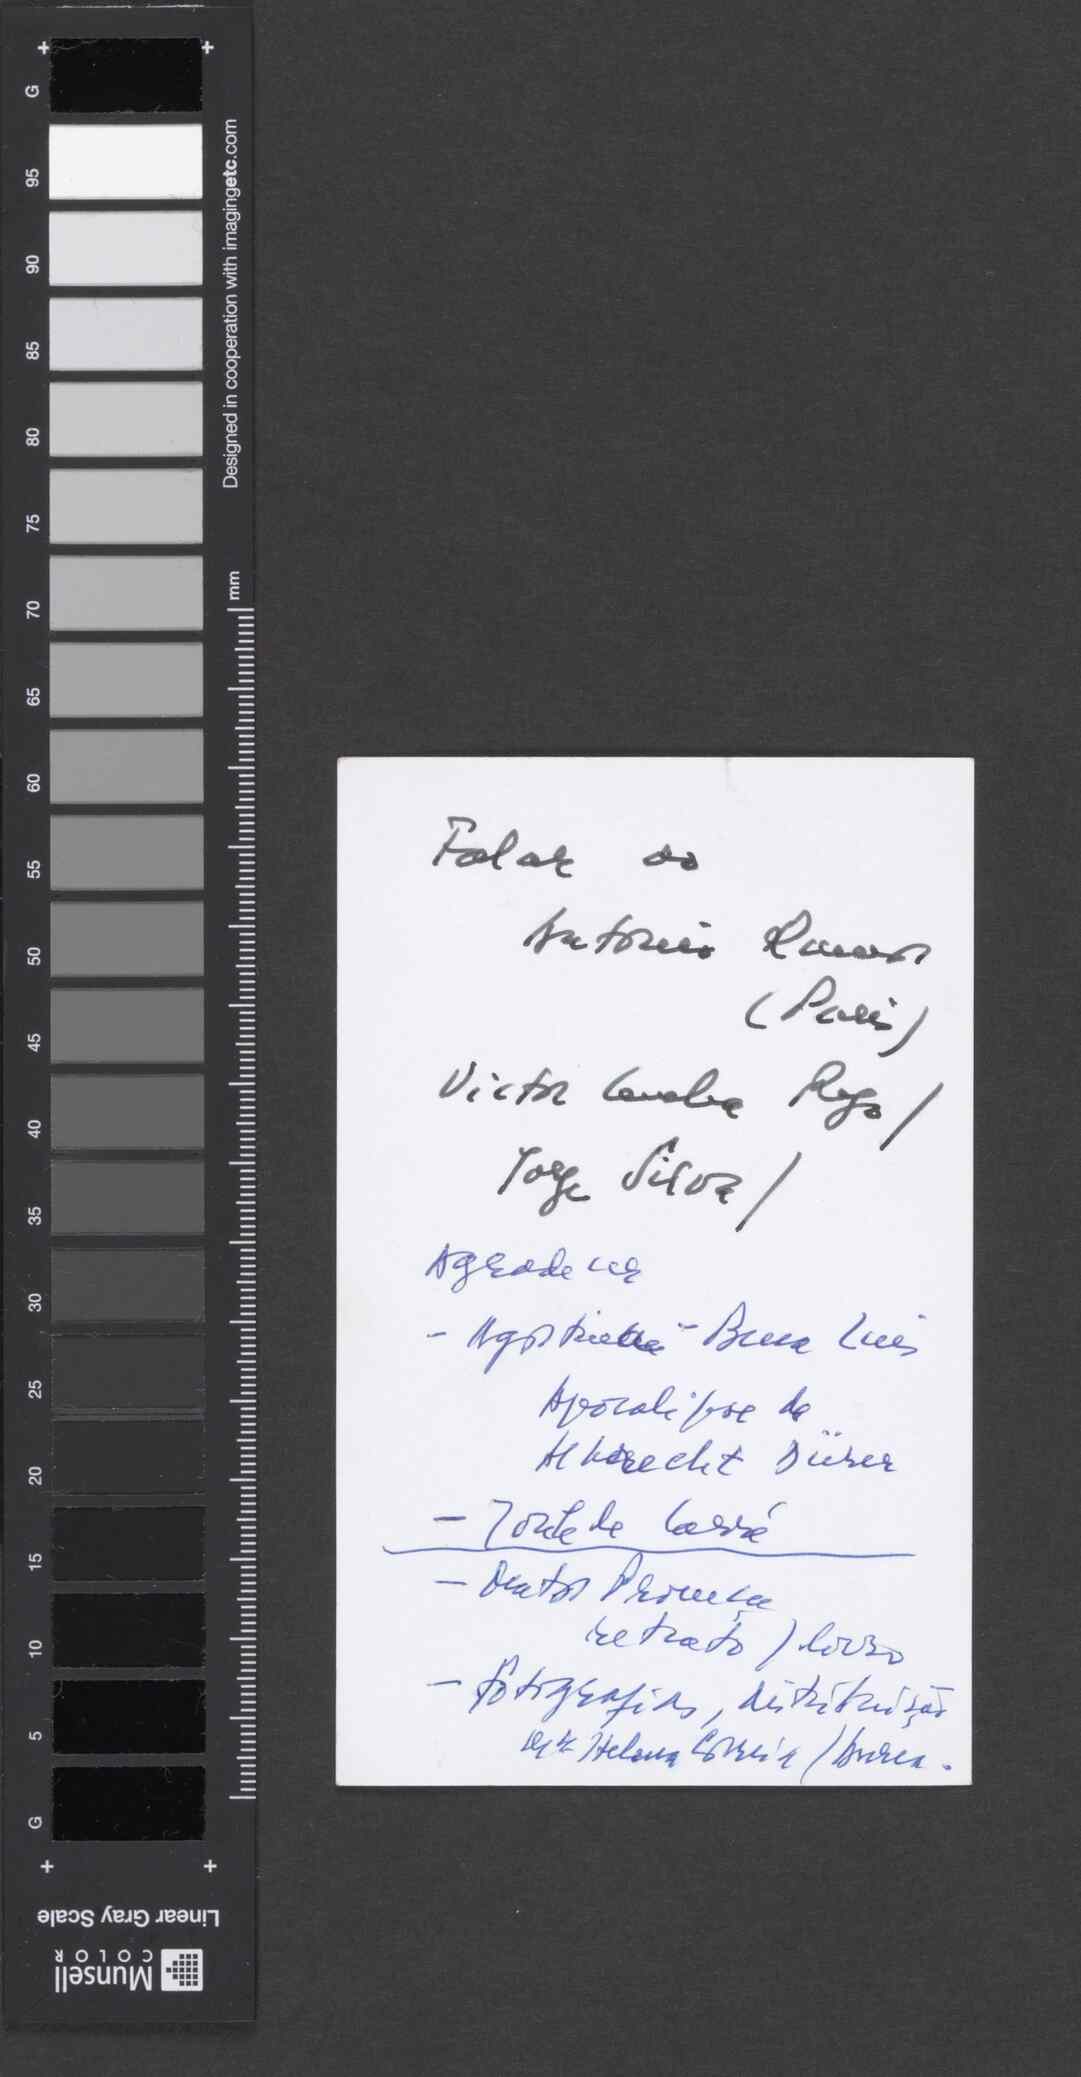 G
95
90
85
80
75
70
65
60
55
50
45
40
35
30
25
20
15
10
5
G
Designed in cooperation with imagingetc.com
mm
Linear Gray Scale
Munsell
COLOR
Falar ao
Antonio Ramos
(Paris)
Victor Cunha Rego /
Jorge Silva /
Agradecer
- Agustina - Bessa Luis
Apocalipse de
Albrecht Dürer
-
- Doutor Proença
retrato / livro
- fotografias, distribuição
Helena Correia /